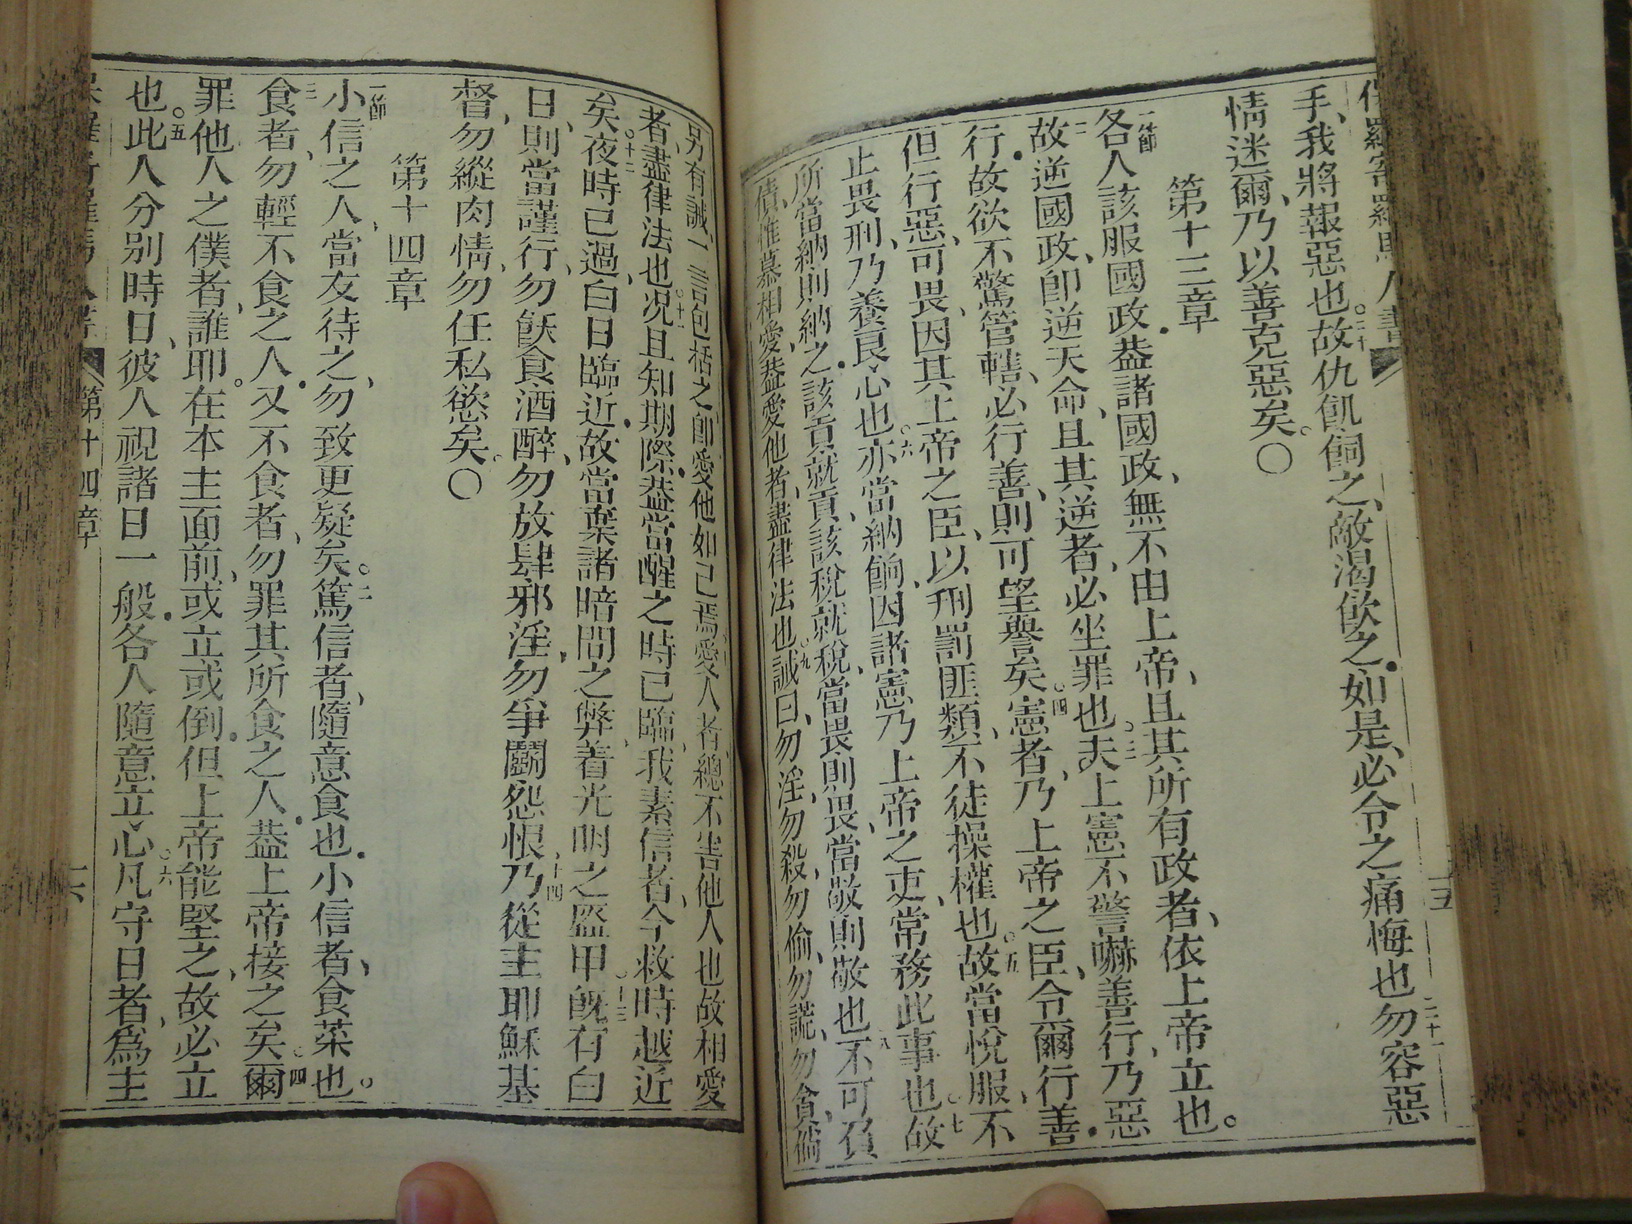 手、我將報惡也。二十故仇飢飼之、敵渴飲之、如是、必令之痛悔也二十一勿容惡
情迷爾、乃以善克惡矣。〇
第十三章
一節各人該服國政、蓋諸國政、無不由上帝、且其所有政者、依上帝立也。
二故逆國政、卽逆天命、且其逆者、必坐罪也。三夫上憲不警嚇善行、乃惡
行、故欲不驚管轄、必行善、則可望譽矣。四憲者、乃上帝之臣、令爾行善、
但行惡、可畏、因其上帝之臣、以刑罰匪類、不徒操權也。五故當悅服、不
止畏刑、乃養良心也。六亦當納餉、因諸憲乃上帝之吏、常務此事也。七故
所當納則納之、該貢就貢、該稅就稅、當畏則畏、當敬則敬也。八不可負
債、惟慕相愛、蓋愛他者、盡律法也。九誡曰、勿淫、勿殺、勿偷、勿謊、勿貪、倘
另有誡、一言包括之、卽愛他如己焉。愛人者、總不害他人也、故相愛
者、盡律法也。十一况且知期際、蓋當醒之時已臨、我素信者、今救時越近
矣。十二夜時已過、白日臨近、故當棄諸暗間之弊、着光明之盔甲。十三旣有白
日、則當謹行、勿飫食酒醉、勿放肆邪淫、勿爭鬭怨恨、十四乃從主耶穌基
督、勿縱肉情、勿任私慾矣。〇
第十四章
一節小信之人、當友待之、勿致更疑矣。二篤信者、隨意食也、小信者、食菜也。
三食者、勿輕不食之人、又不食者、勿罪其所食之人、蓋上帝接之矣。四爾
罪他人之僕者、誰耶。在本主面前、或立或倒。但上帝能堅之、故必立
也。五此人分別時日、彼人視諸日一般、各人隨意立心。六凡守日者、爲主
第十四章